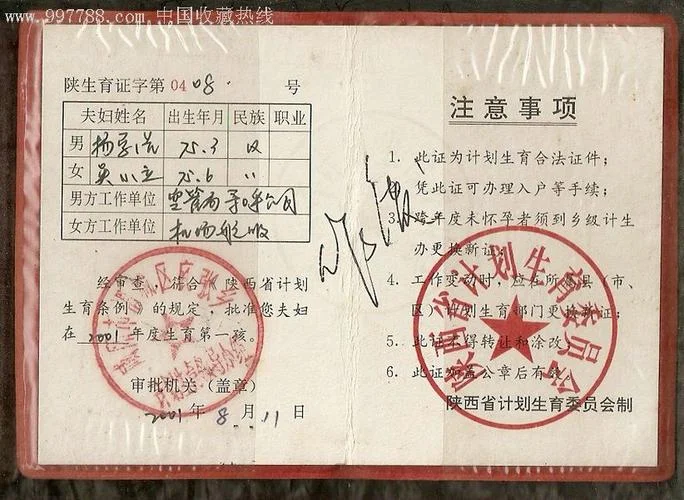 www.997788.com 中国收藏热线
陕生育证字第 0408 号
夫妇姓名 出生年月 民族 职业
男 杨 75.3 汉
女 吴小立 75.6 〃
男方工作单位 空管局寻呼公司
女方工作单位 机场航服
经审查，符合《陕西省计划
生育条例》的规定，批准您夫妇
在 2001 年度生育第一孩。
审批机关（盖章）
2001 年 8 月 11 日
注意事项
1. 此证为计划生育合法证件；
凭此证可办理入户等手续；
3. 跨年度未怀孕者须到乡级计生
办更换新证；
4. 工作变动时，应在所属县（市、
区）计划生育部门更换新证；
5. 此证不得转让和涂改；
6. 此证加盖公章后有效。
陕西省计划生育委员会制
陕西省计划生育委员会